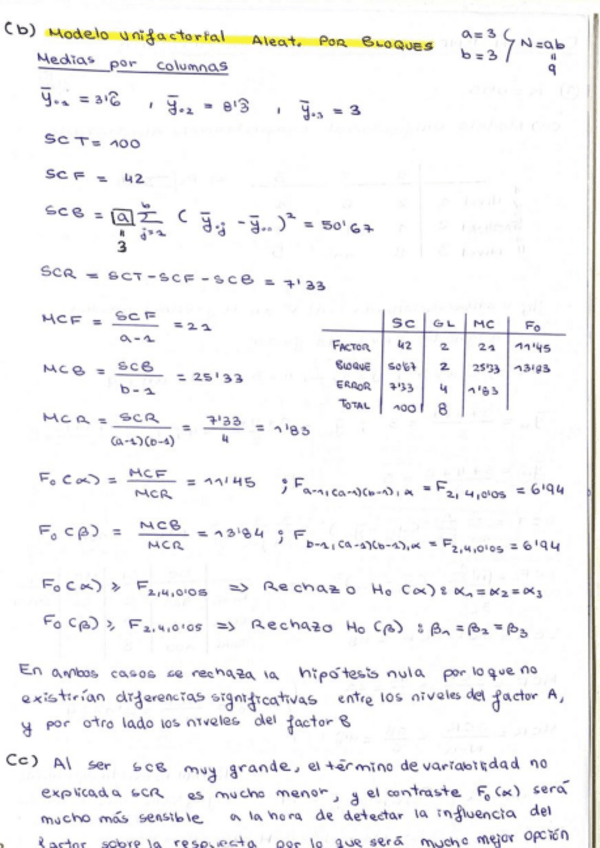 (b) Modelo unifactorial Aleat. POR BLOQUES
a=3
b=3
N=ab
=
9
Medias por columnas
ȳ.₁ = 3'6̂ , ȳ.₂ = 8'3̂ , ȳ.₃ = 3
SCT = 100
SCF = 42
SCB = a Σ (ȳ.j - ȳ..)² = 50'67
b
j=1
=
3
SCR = SCT - SCF - SCB = 7'33
MCF = SCF/(a-1) = 21
MCB = SCB/(b-1) = 25'33
MCR = SCR/((a-1)(b-1)) = 7'33/4 = 1'83
SC GL MC F₀
FACTOR 42 2 21 11'45
BLOQUE 50'67 2 25'33 13'83
ERROR 7'33 4 1'83
TOTAL 100 8
F₀(α) = MCF/MCR = 11'45 ; F a-1,(a-1)(b-1),α = F 2,4,0'05 = 6'94
F₀(β) = MCB/MCR = 13'84 ; F b-1,(a-1)(b-1),α = F 2,4,0'05 = 6'94
F₀(α) ≥ F 2,4,0'05 ⇒ Rechazo H₀(α) : α₁=α₂=α₃
F₀(β) ≥ F 2,4,0'05 ⇒ Rechazo H₀(β) : β₁=β₂=β₃
En ambos casos se rechaza la hipótesis nula por lo que no
existirían diferencias significativas entre los niveles del factor A,
y por otro lado los niveles del factor B
(c) Al ser SCB muy grande, el término de variabilidad no
explicada SCR es mucho menor, y el contraste F₀(α) será
mucho más sensible a la hora de detectar la influencia del
factor sobre la respuesta por lo que será mucho mejor opción